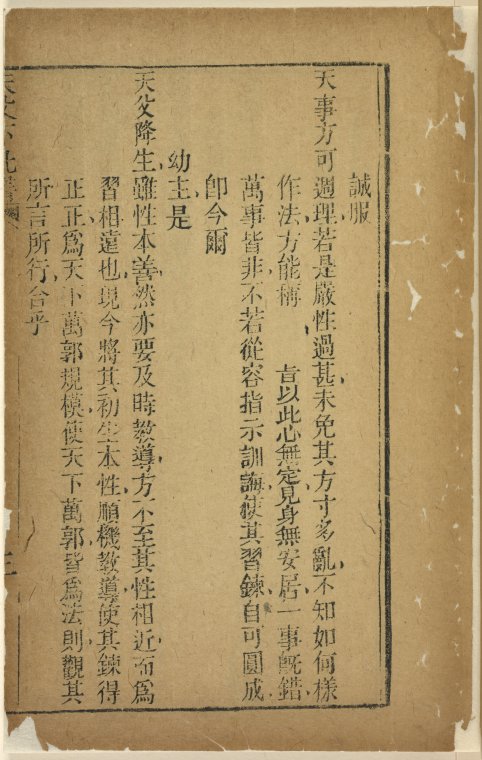 誠服
天事方可週理若是嚴性過甚未免其方寸多亂不知如何樣
作法方能稱　旨以此心無定見身無安居一事既錯
萬事皆非不若從容指示訓誨使其習鍊自可圓成
即今爾
幼主是
天父降生雖性本善然亦要及時教導方不至其性相近而為
習相遠也現今將其初生本性順機教導使其鍊得
正正為天下萬郭規模使天下萬郭皆為法則觀其
所言所行合乎
天父下凡